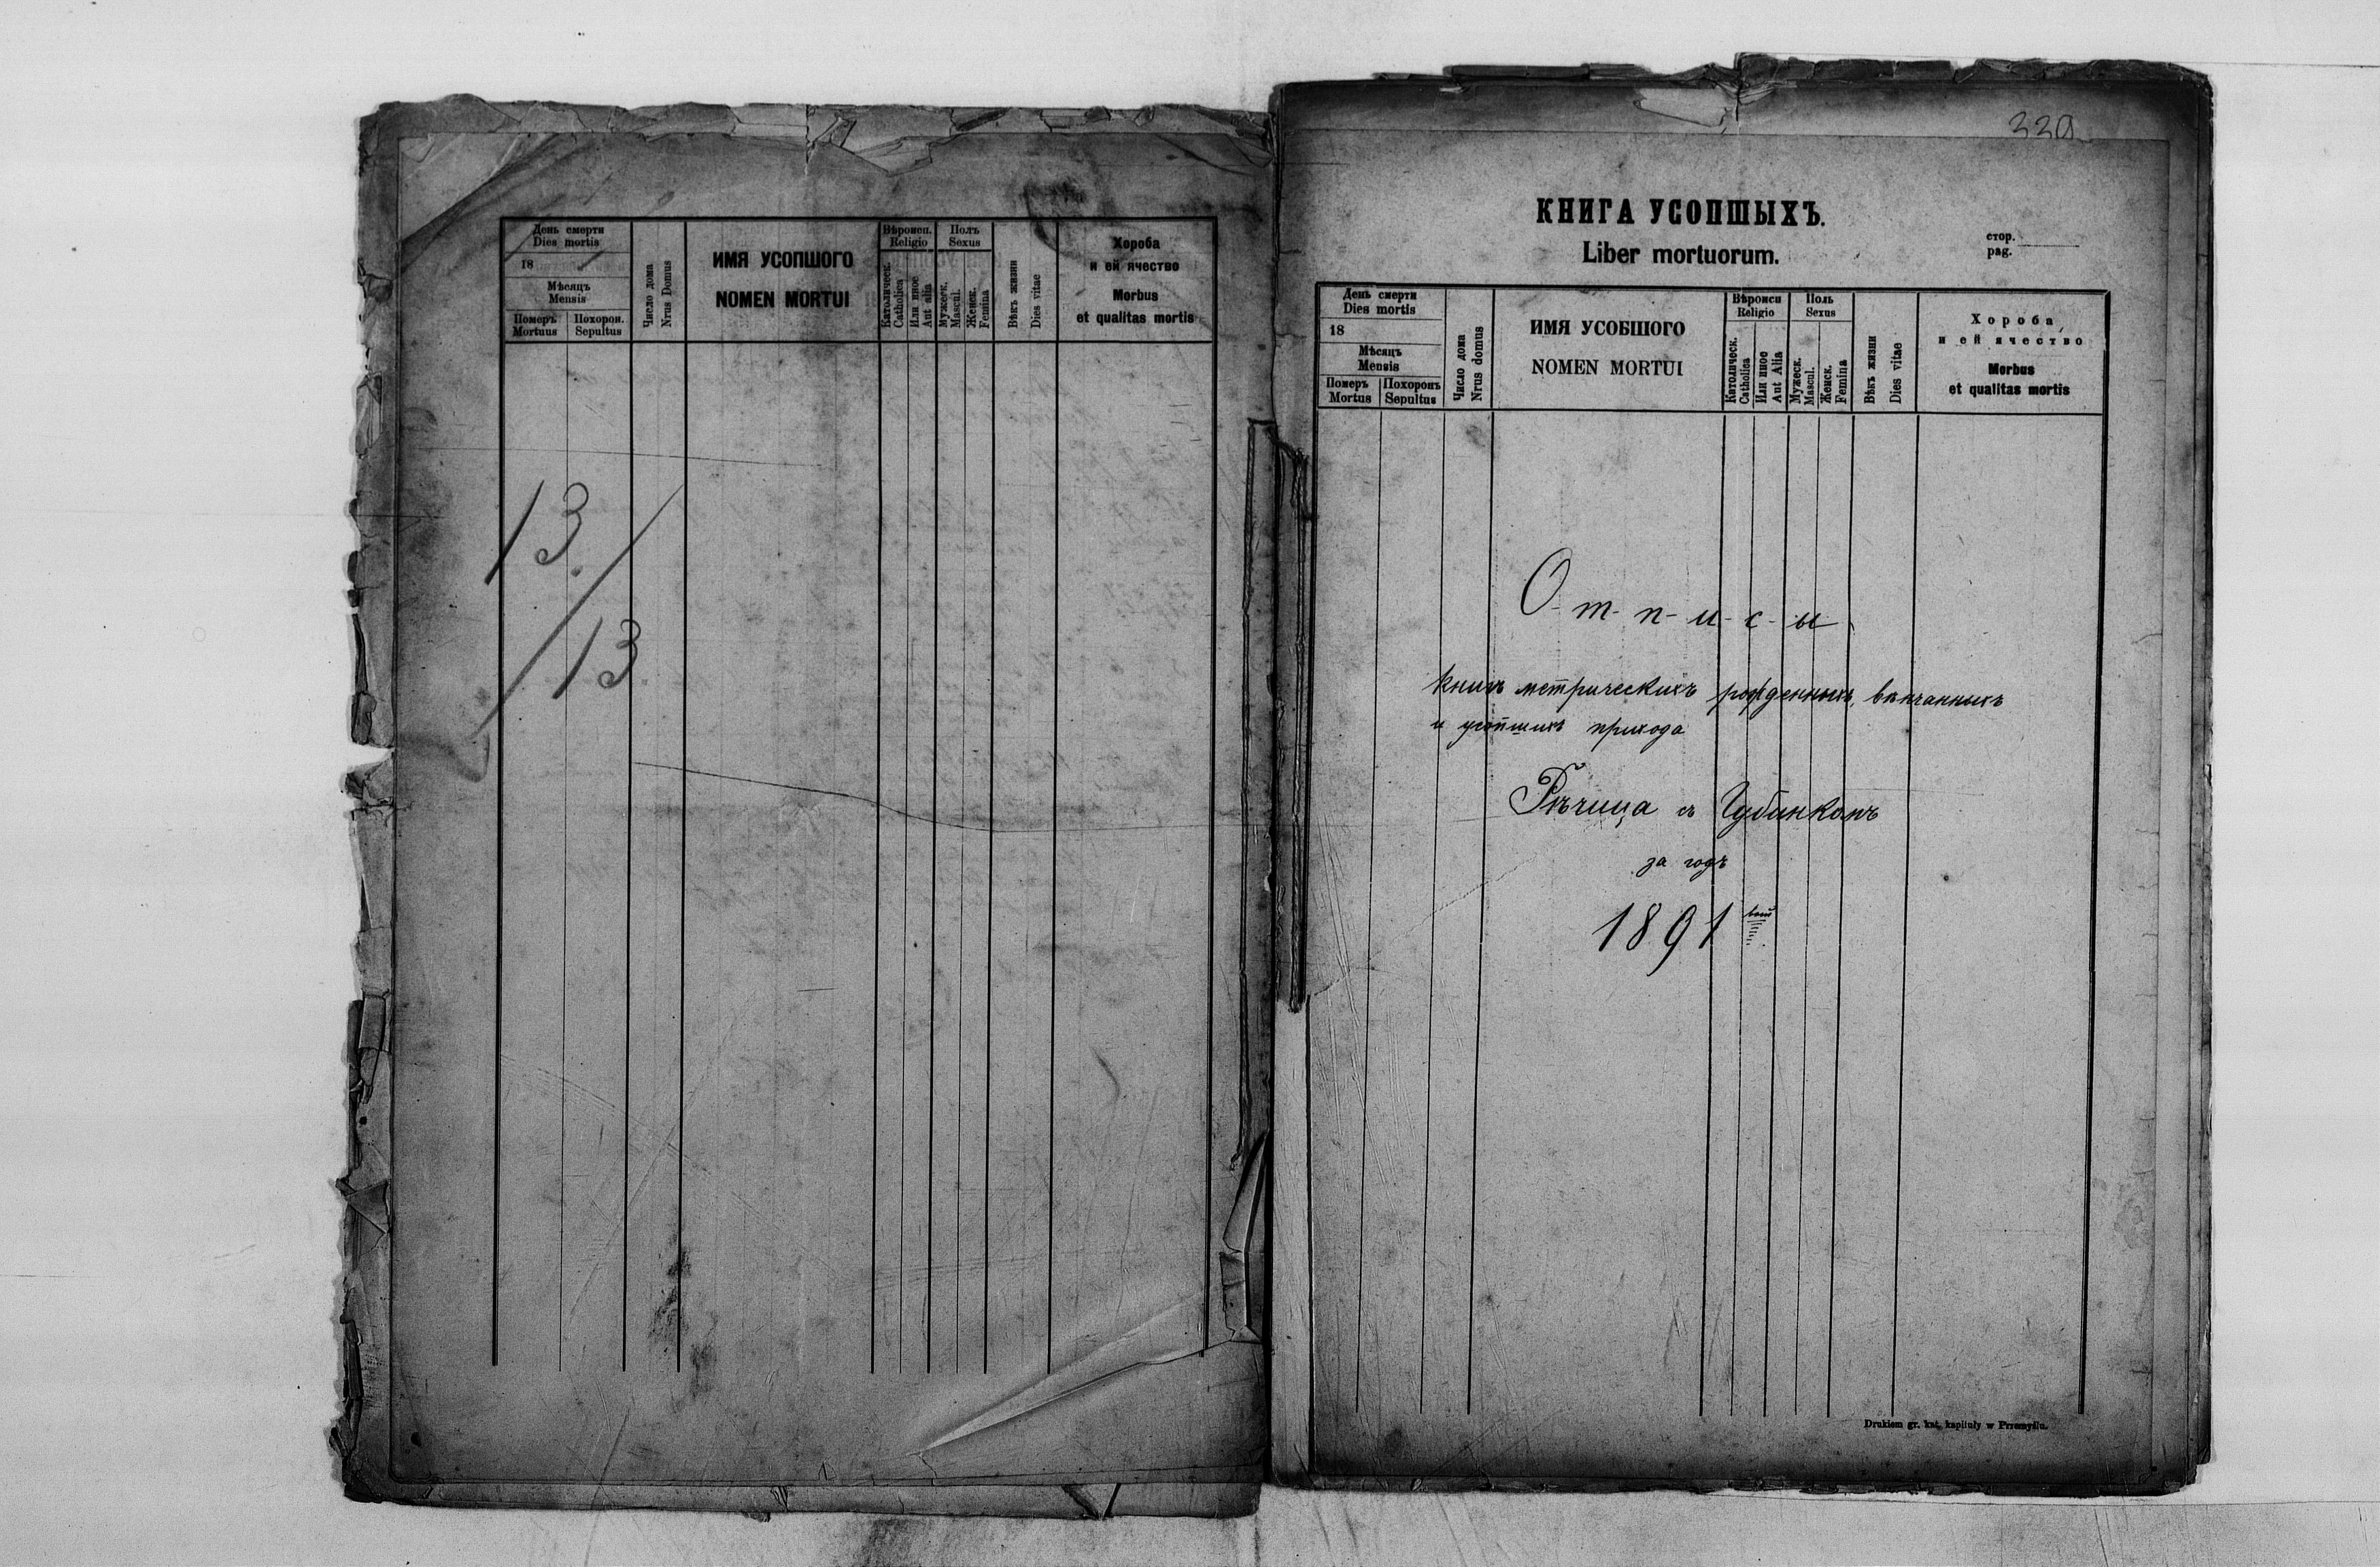 День смерти
Dies mortis
18
Мѣсяць
Mensis
Померъ
Mortuus
Похорон.
Sepultus
Число дома
Nrus Domus
ИМЯ УСОПШОГО
NOMEN MORTUI
Вѣроисп.
Religio
Католическ.
Catholica
Или иное
Aut alia
Полъ
Sexus
Мужеск.
Mascul.
Женск.
Femina
Вѣкъ жизни
Dies vitae
Хороба
и ей ячество
Morbus
et qualitas mortis
13.
13.
339
КНИГА УСОПШЫХЪ.
Liber mortuorum.
стор.
pag.
День смерти
Dies mortis
18
Мѣсяць
Mensis
Померъ
Mortus
Похоронъ
Sepultus
Число дома
Nrus domus
ИМЯ УСОБШОГО
NOMEN MORTUI
Вѣроиси
Religio
Католическ.
Catholica
Или иное
Aut Alia
Поль
Sexus
Мужеск.
Mascul.
Женск.
Femina
Вѣкъ жизни
Dies vitae
Хороба,
и ей ячество
Morbus
et qualitas mortis
О-т-п-и-с-ы
книгъ метрическихъ рожденныхъ, вѣнчанныхъ
и усопшихъ прихода
Рѣчица съ
за годъ
1891
Drukiem gr. kat. kapituły w Przemyślu.